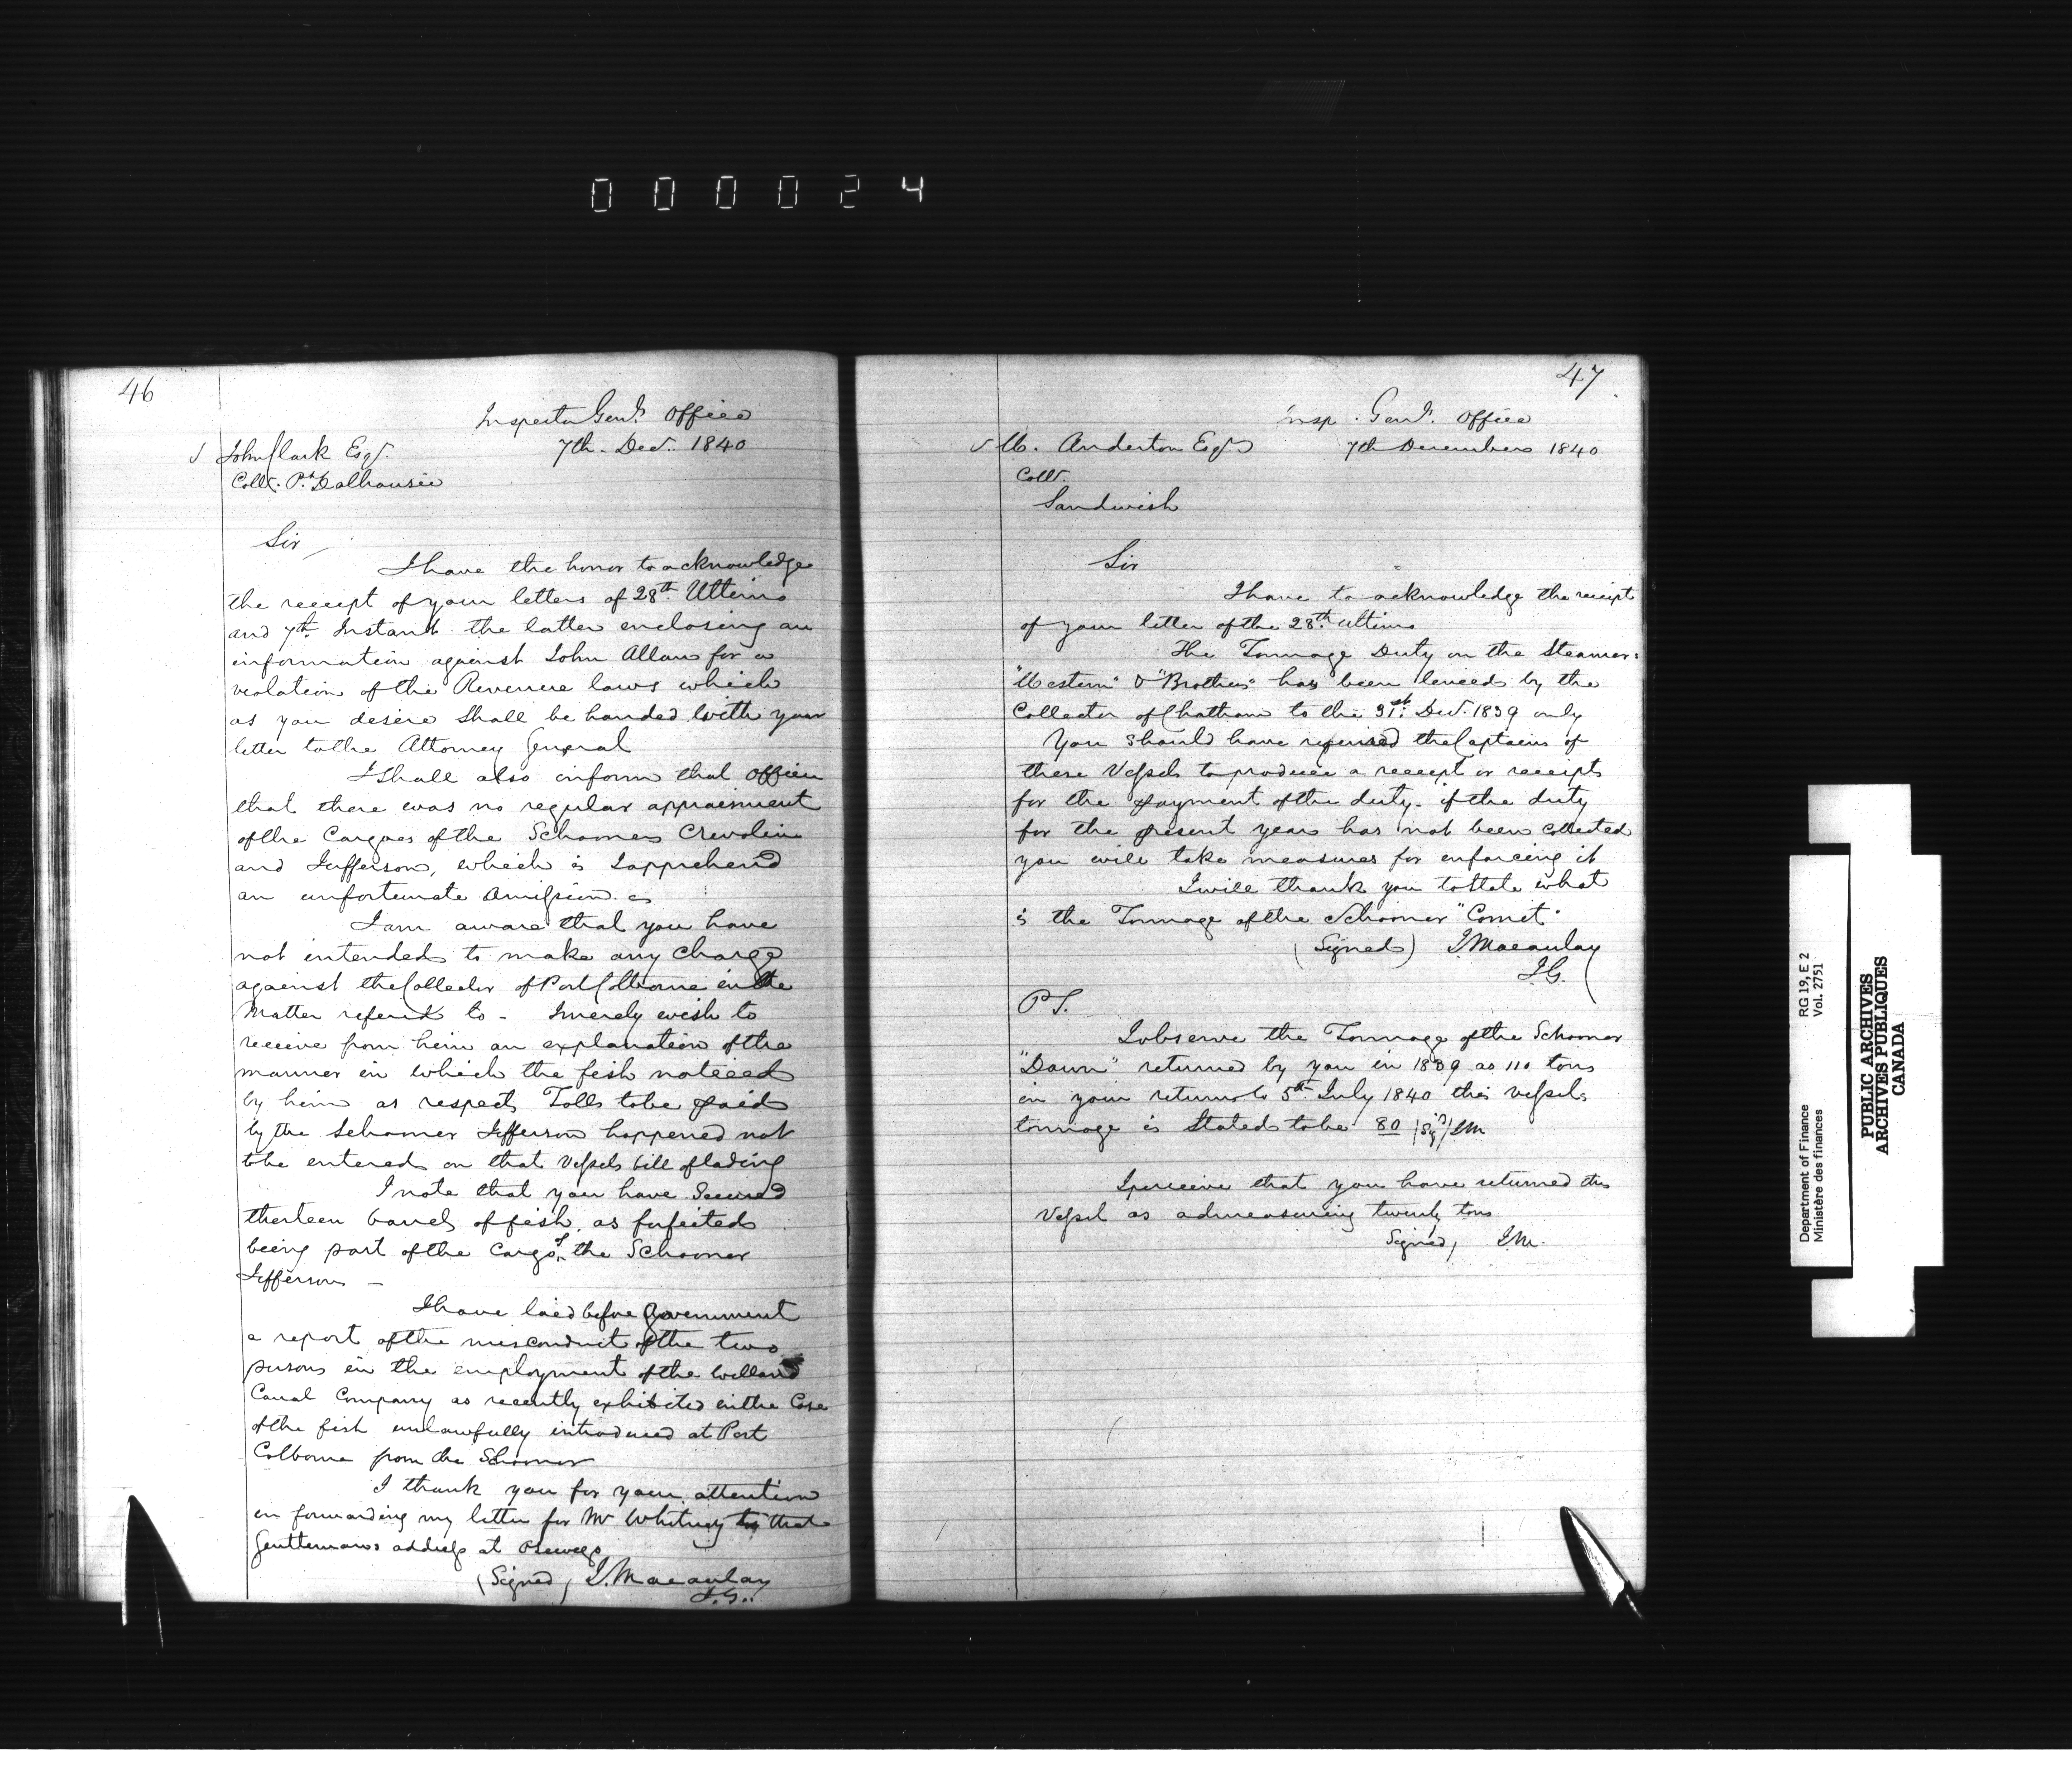 000024
46
Inspector Genl's Office
7th. Decr. 1840
John Clark Esqr.
Collr. Pt. Dalhousie
Sir
I have the honor to acknowledge
the receipt of your letters of 28th Ultimo
and 7th Instant the latter enclosing an
information against John Allan for a
violation of the Revenue laws which
as you desire shall be handed with your
letter to the Attorney General
I shall also inform that officer
that there was no regular appraisement
of the Cargoes of the Schooners
and Jefferson, which is I apprehend
an unfortunate omission.
I am aware that you have
not intended to make any charge
against the Collector of Port Colborne in the
Matter referred to - I merely wish to
receive from him an explanation of the
manner in which the fish noticed
by him as respects Tolls to be paid
by the Schooner Jefferson happened not
to be entered on that Vessels bill of lading
I note that you have Secured
thirteen barrels of fish as forfeited
being part of the Cargo of the Schooner
Jefferson -
I have laid before Government
a report of the misconduct of the two
persons in the employment of the Welland
Canal Company as recently exhibited in the Case
of the fish unlawfully introduced at Port
Colborne from the Schooner
I thank you for your attention
in forwarding my letter for Mr Whitney to that
Gentlemans address at Oswego
(Signed) J. Macaulay
I.G.
47
Insp. Genl's. Office
7th December 1840
W. Anderton Esqr
Collr.
Sandwich
Sir
I have to acknowledge the receipt
of your letter of the 28th Ultimo
The Tonnage Duty on the Steamers
"Western" & "Brothers" has been levied by the
Collector of Chatham to the 31st. Decr. 1839 only
You should have required the Captains of
these Vessels to produce a receipt or receipts
for the payment of the duty - if the duty
for the present year has not been collected
you will take measures for enforcing it
I will thank you to state what
is the Tonnage of the Schooner "Comet"
(Signed) J. Macaulay
I.G.
P S.
I observe the Tonnage of the Schooner
"Dawn" returned by you in 1839 as 110 tons
in your return to 5th July 1840 this vessels
tonnage is Stated to be 80 (Sigd) J M
I perceive that you have returned this
Vessel as admeasuring twenty tons
Signed, J.M.
Department of Finance
Ministère des finances
RG 19, E 2
Vol. 2751
PUBLIC ARCHIVES
ARCHIVES PUBLIQUES
CANADA